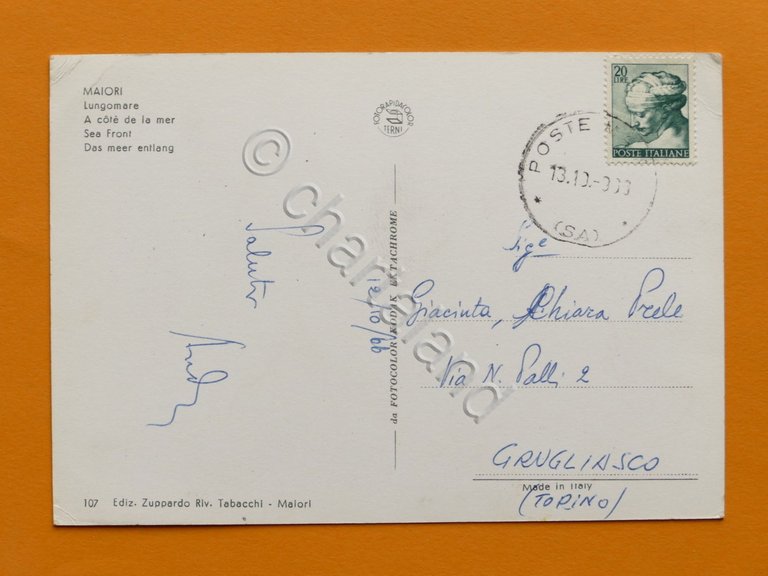 MAIORI
Lungomare
A côtè de la mer
Sea Front
Das meer entlang
FOTORAPIDACOLOR
TERNI
20
LIRE
POSTE ITALIANE
POSTE
13.10.
(SA)
© chartaland
Saluti
12/10/66
da FOTOCOLOR KODAK EKTACHROME
Sig.e
Giacinta, Chiara Prele
Via N. Palli 2
GRUGLIASCO
Made in Italy
(TORINO)
107 Ediz. Zuppardo Riv. Tabacchi - Maiori